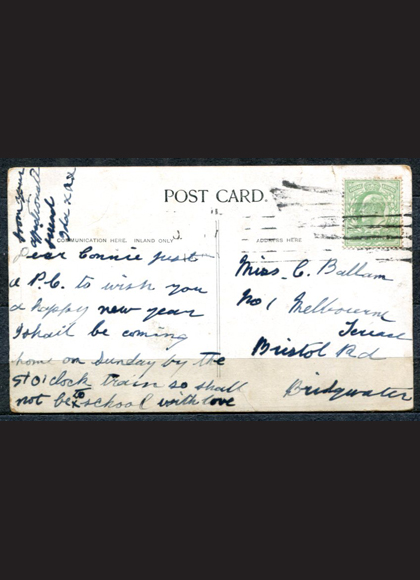 POST CARD.
COMMUNICATION HERE. INLAND ONLY
ADDRESS HERE
Dear Connie just
a P.C. to wish you
a happy new year
I shall be coming
home on Sunday by the
5 O'clock train so shall
not be to school with love
from your
friend
Miss. C. Ballam
No 1 Melbourne
Terrace
Bristol Rd
Bridgwater